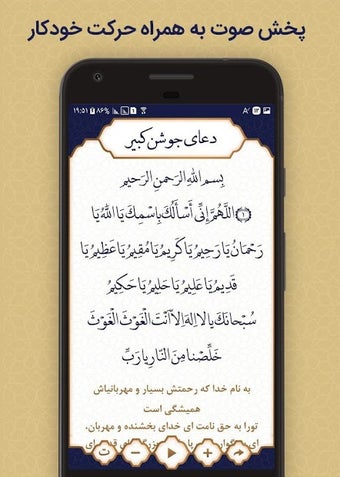 پخش صوت به همراه حرکت خودکار
۱۹:۵۱ ۸۶%
دعای جوشن کبیر
بِسمِ اللهِ الرَحمنِ الرَحیمِ
﴿۱﴾ اللَّهُمَّ إِنِّی أَسأَلُکَ بِاسمِکَ یَا اللهُ یَا
رَحْمَانُ یَا رَحِیمُ یَا کَرِیمُ یَا مُقِیمُ یَا عَظِیمُ یَا
قَدِیمُ یَا عَلِیمُ یَا حَلِیمُ یَا حَکِیمُ
سُبْحَانَکَ یا لا اِلهَ اِلاّ اَنْتَ الْغَوْثَ الْغَوْثَ
خَلِّصْنا مِنَ النّارِ یا رَبِّ
به نام خدا که رحمتش بسیار و مهربانیاش
همیشگی است
تورا به حق نامت ای خدای بخشنده و مهربان،
ت